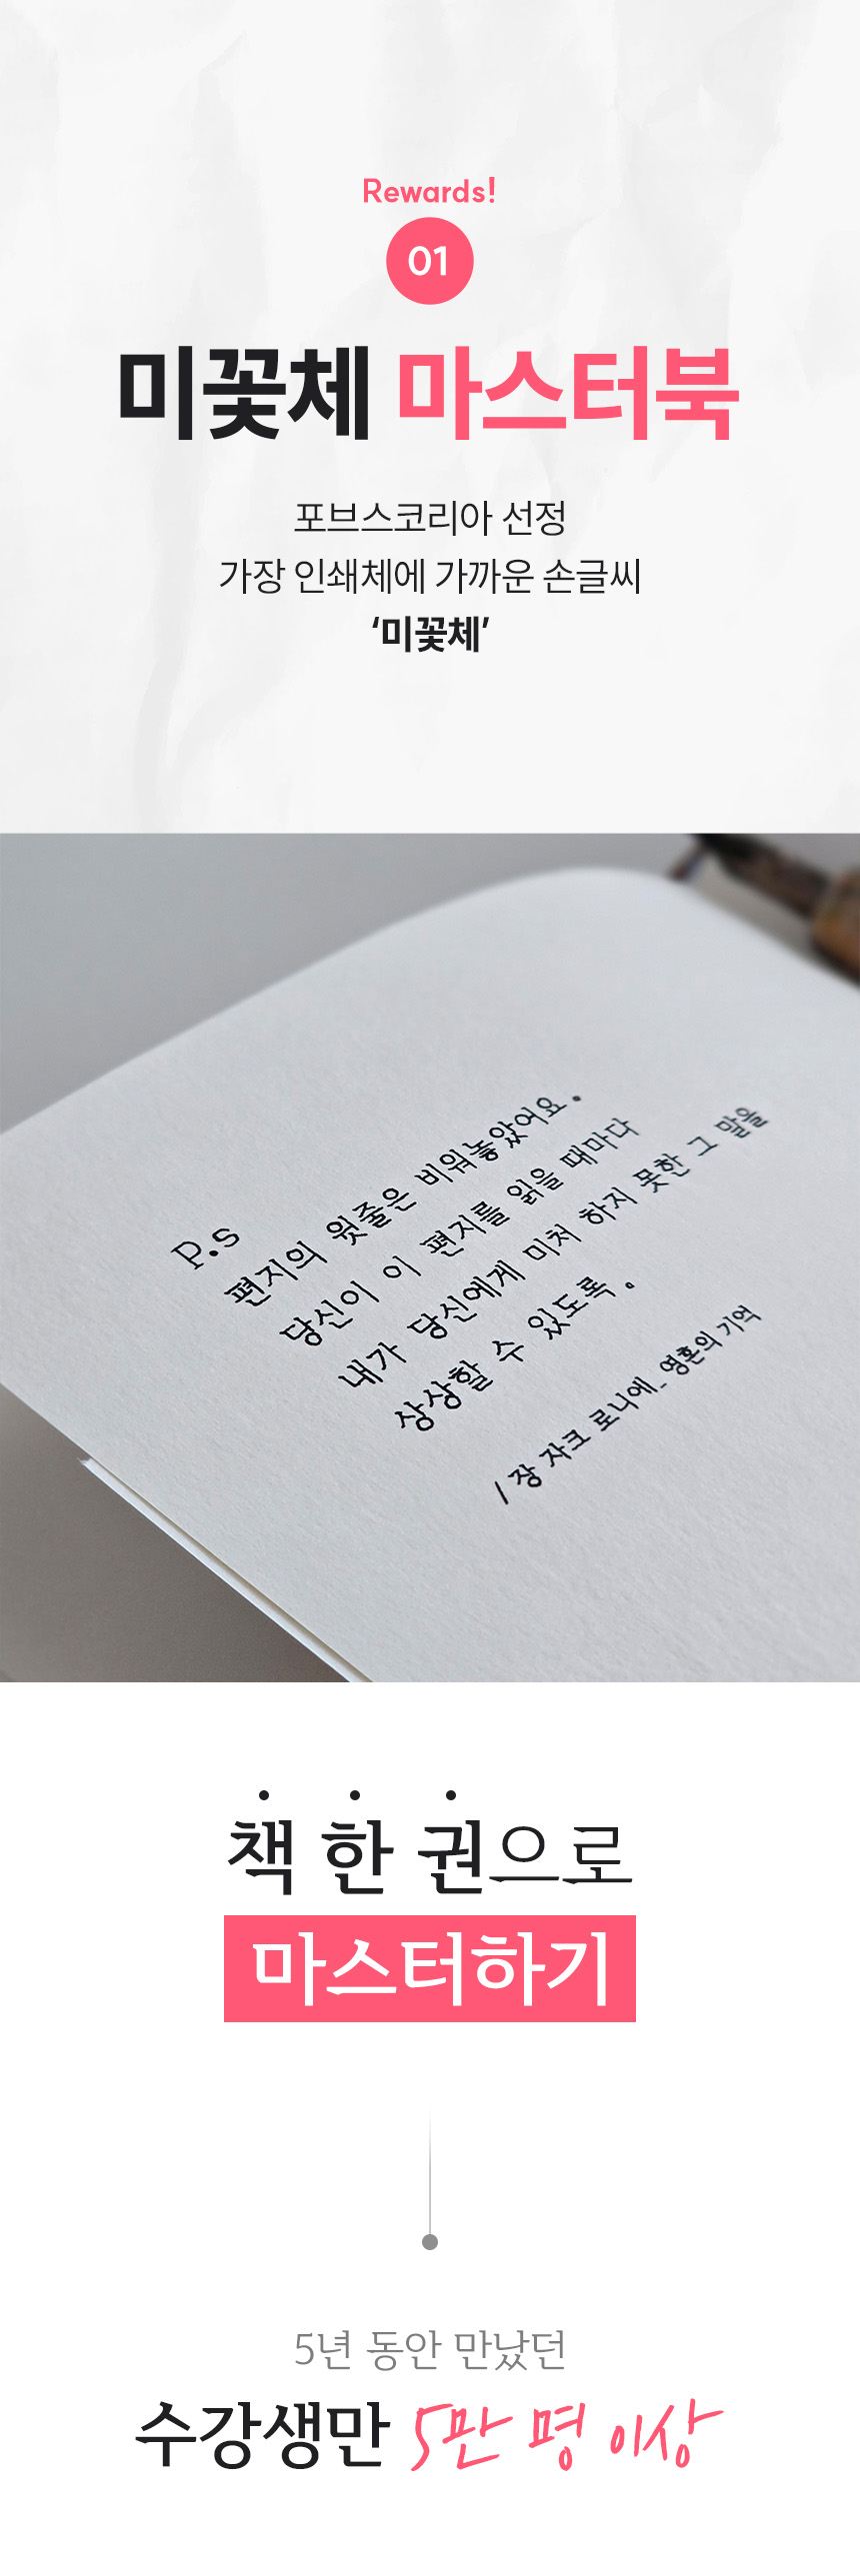 Rewards!
01
미꽃체 마스터북
포브스코리아 선정
가장 인쇄체에 가까운 손글씨
‘미꽃체’
P.s
편지의 윗줄은 비워놓았어요.
당신이 이 편지를 읽을 때마다
내가 당신에게 미처 하지 못한 그 말을
상상할 수 있도록.
/ 장 자크 로니에_영혼의 기억
책 한 권으로
마스터하기
5년 동안 만났던
수강생만 5만 명 이상